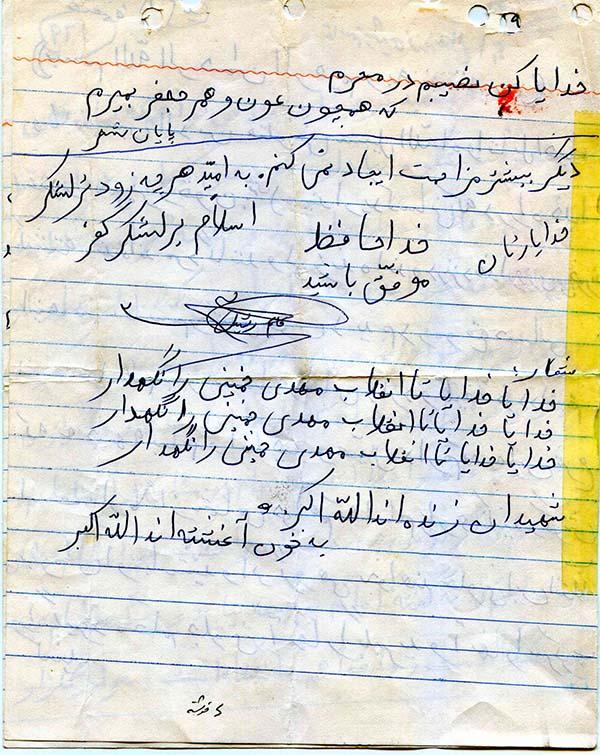 ۲۹
خدایا کن نصیبم در محرم
که همچون عون و هم جعفر بمیرم
پایان شعر
دیگر بیشتر مزاحمت ایجاد نمی کنم. به امید هر چه زودتر لشکر
اسلام بر لشکر کفر
خدایارتان
خدا حافظ
موفق باشید
شعار:
خدایا خدایا تا انقلاب مهدی خمینی را نگهدار
خدایا خدایا تا انقلاب مهدی خمینی را نگهدار
خدایا خدایا تا انقلاب مهدی خمینی را نگهدار
شهیدان زنده اند الله اکبر و
به خون آغشته اند الله اکبر